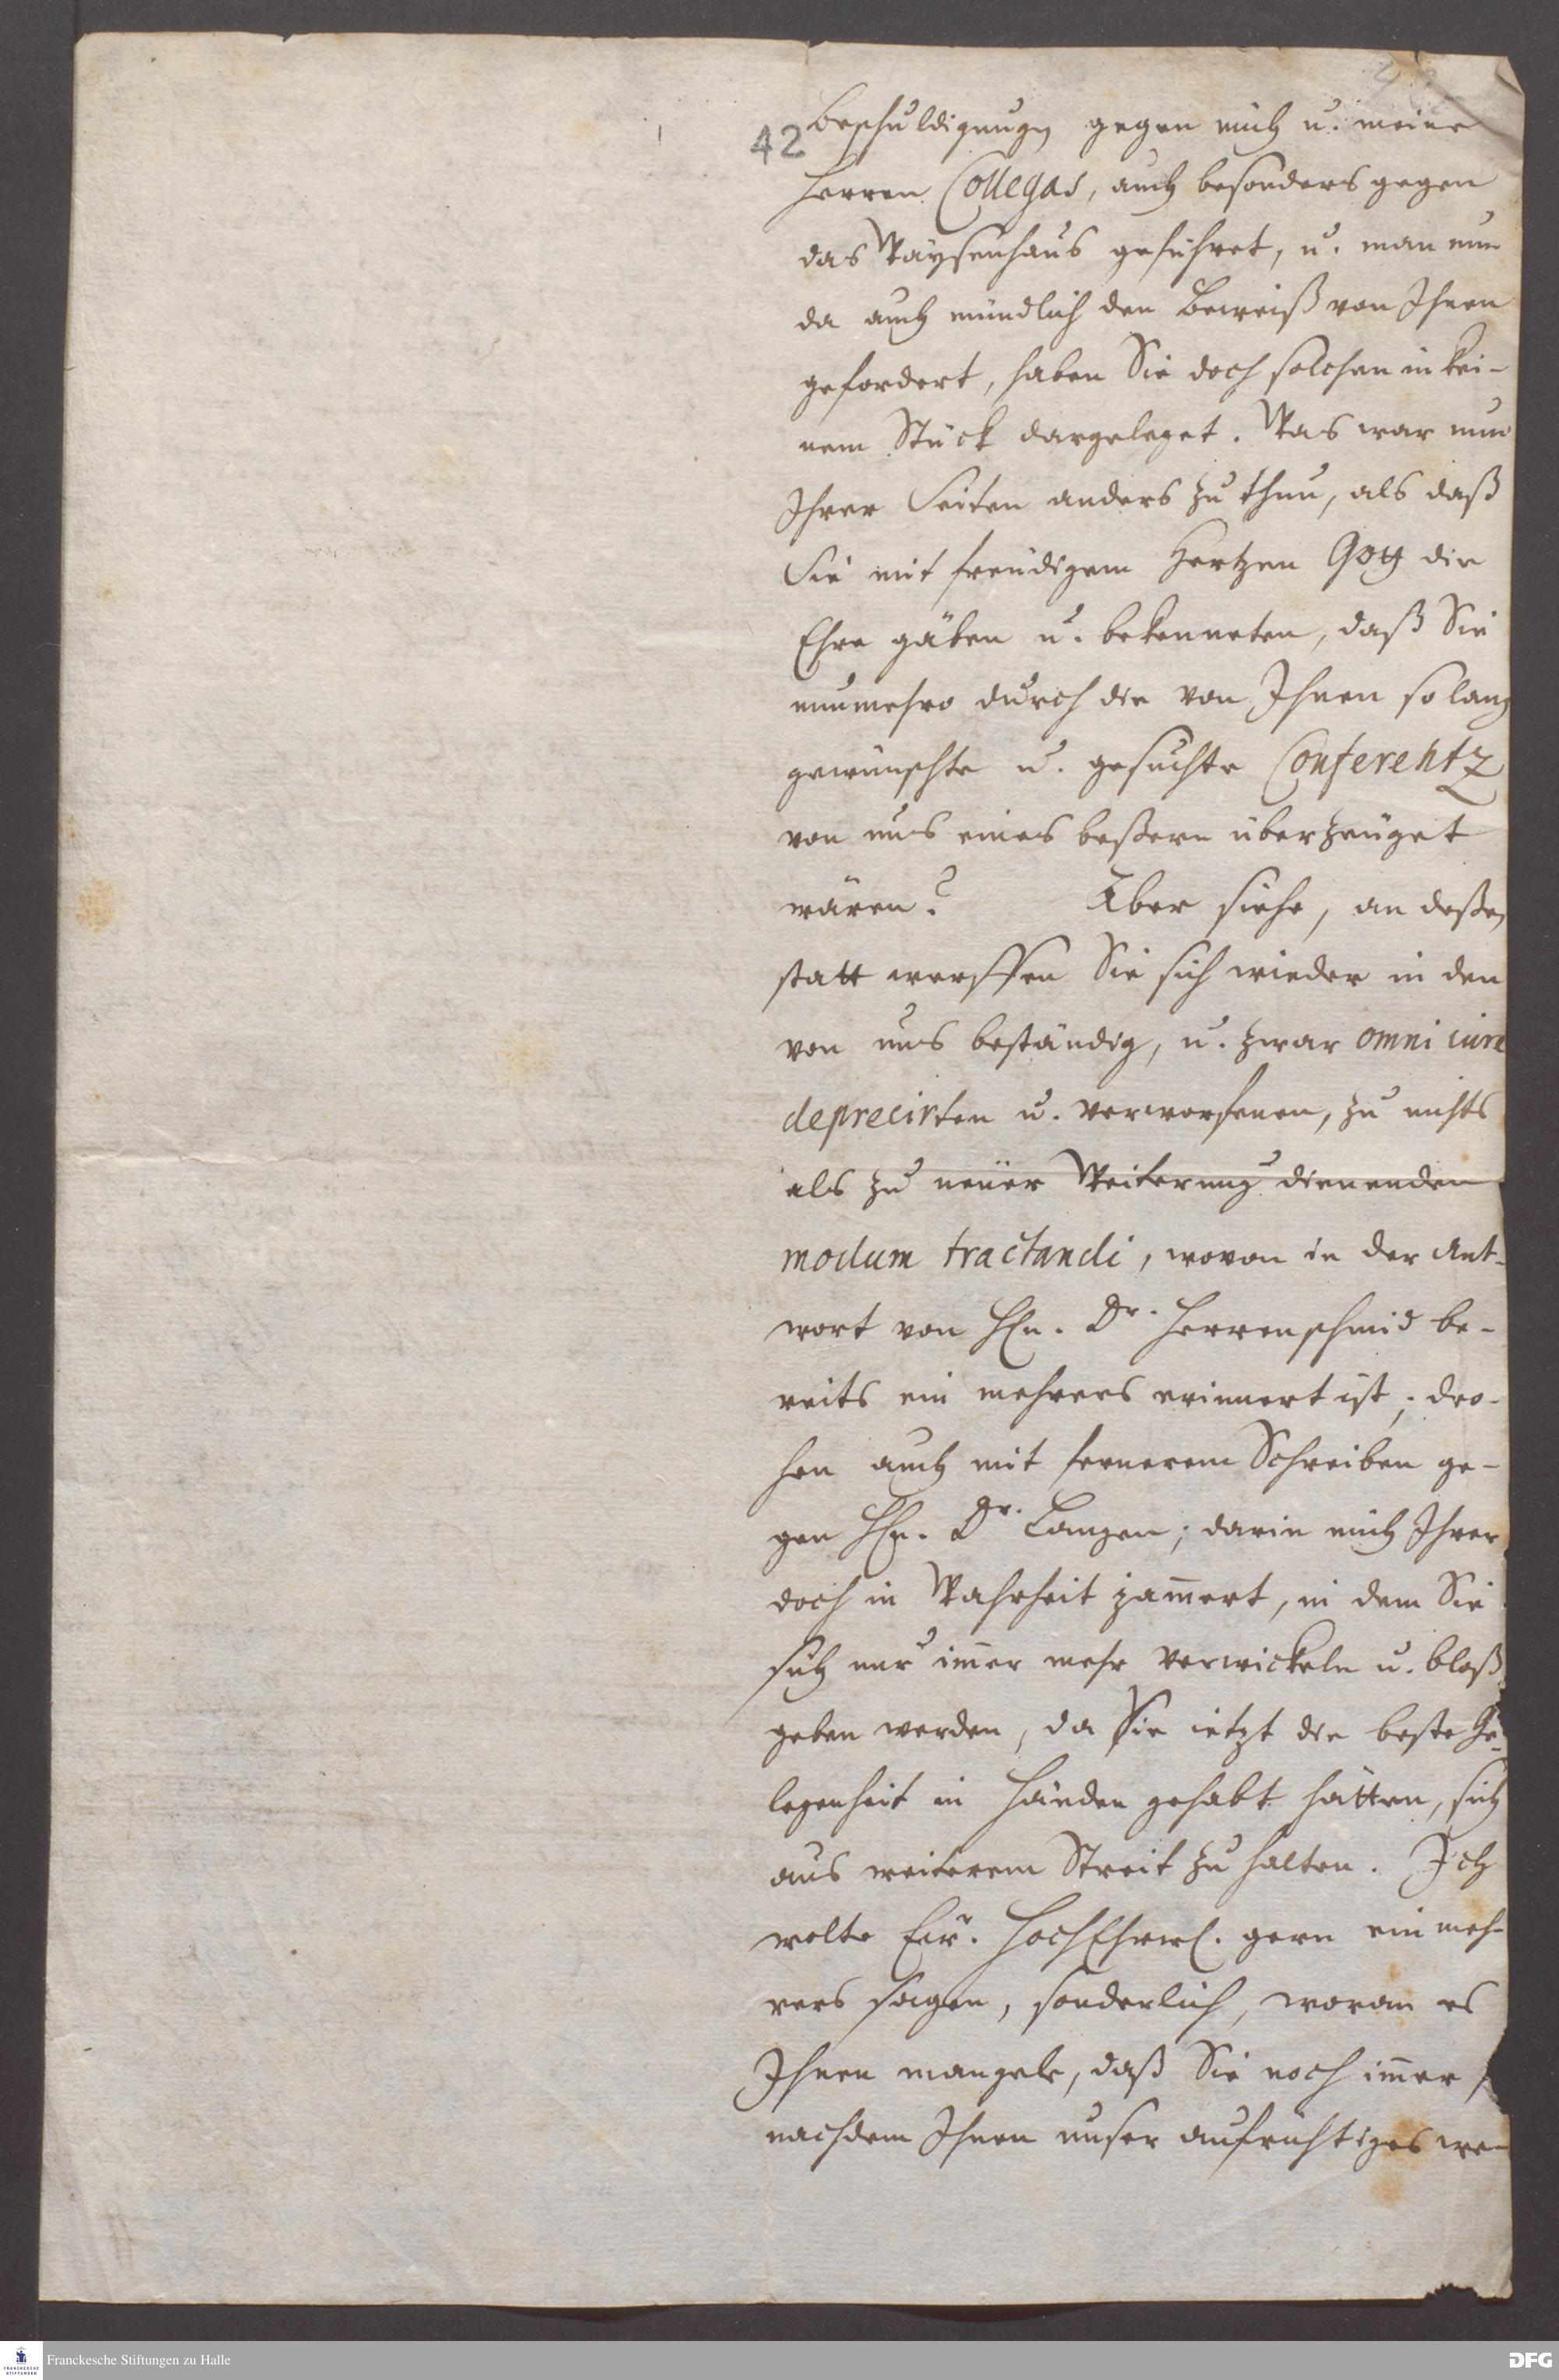 42
Beschuldigungen gegen mich u. meine
Herren Collegas, auch besonders gegen
das Waysenhaus geführet, u. man nun
da auch mündlich den Beweiß von Ihnen
gefordert, haben Sie doch solchen in kei-
nem Stück dargeleget. Was war nun
Ihrer Seiten anders zu thun, als daß
Sie mit freudigem Hertzen Gott die
Ehre gäben u. bekenneten, daß Sie
nunmehro durch die von Ihnen so lang
gewünschte u. gesuchte Conferentz
von uns eines beßern überzeuget
wären? Aber siehe, an deßen
statt werffen Sie sich wieder in den
von uns beständig, u. zwar omni iure
deprecirten u. verworfenen, zu nichts
als zu neuer Weiterung dienenden
modum tractandi, wovon in der Ant-
wort von Hn. Dr. Herrenschmid be-
reits ein mehrers erinnert ist; dro-
hen auch mit fernerem Schreiben ge-
gen Hn. Dr. Langen; darin mich Ihrer
doch in Wahrheit jam̅ert, in dem Sie
sich nur im̅er mehr verwickeln u. bloß
geben werden, da Sie ietzt die beste Ge-
legenheit in Händen gehabt hätten, sich
aus weiterem Streit zu halten. Ich
wolte Eur. HochEhrw. gern ein meh-
rers sagen, sonderlich, woran es
Ihnen mangele, daß Sie noch im̅er,
nachdem Ihnen unser aufrichtiges we-
Franckesche Stiftungen zu Halle
DFG